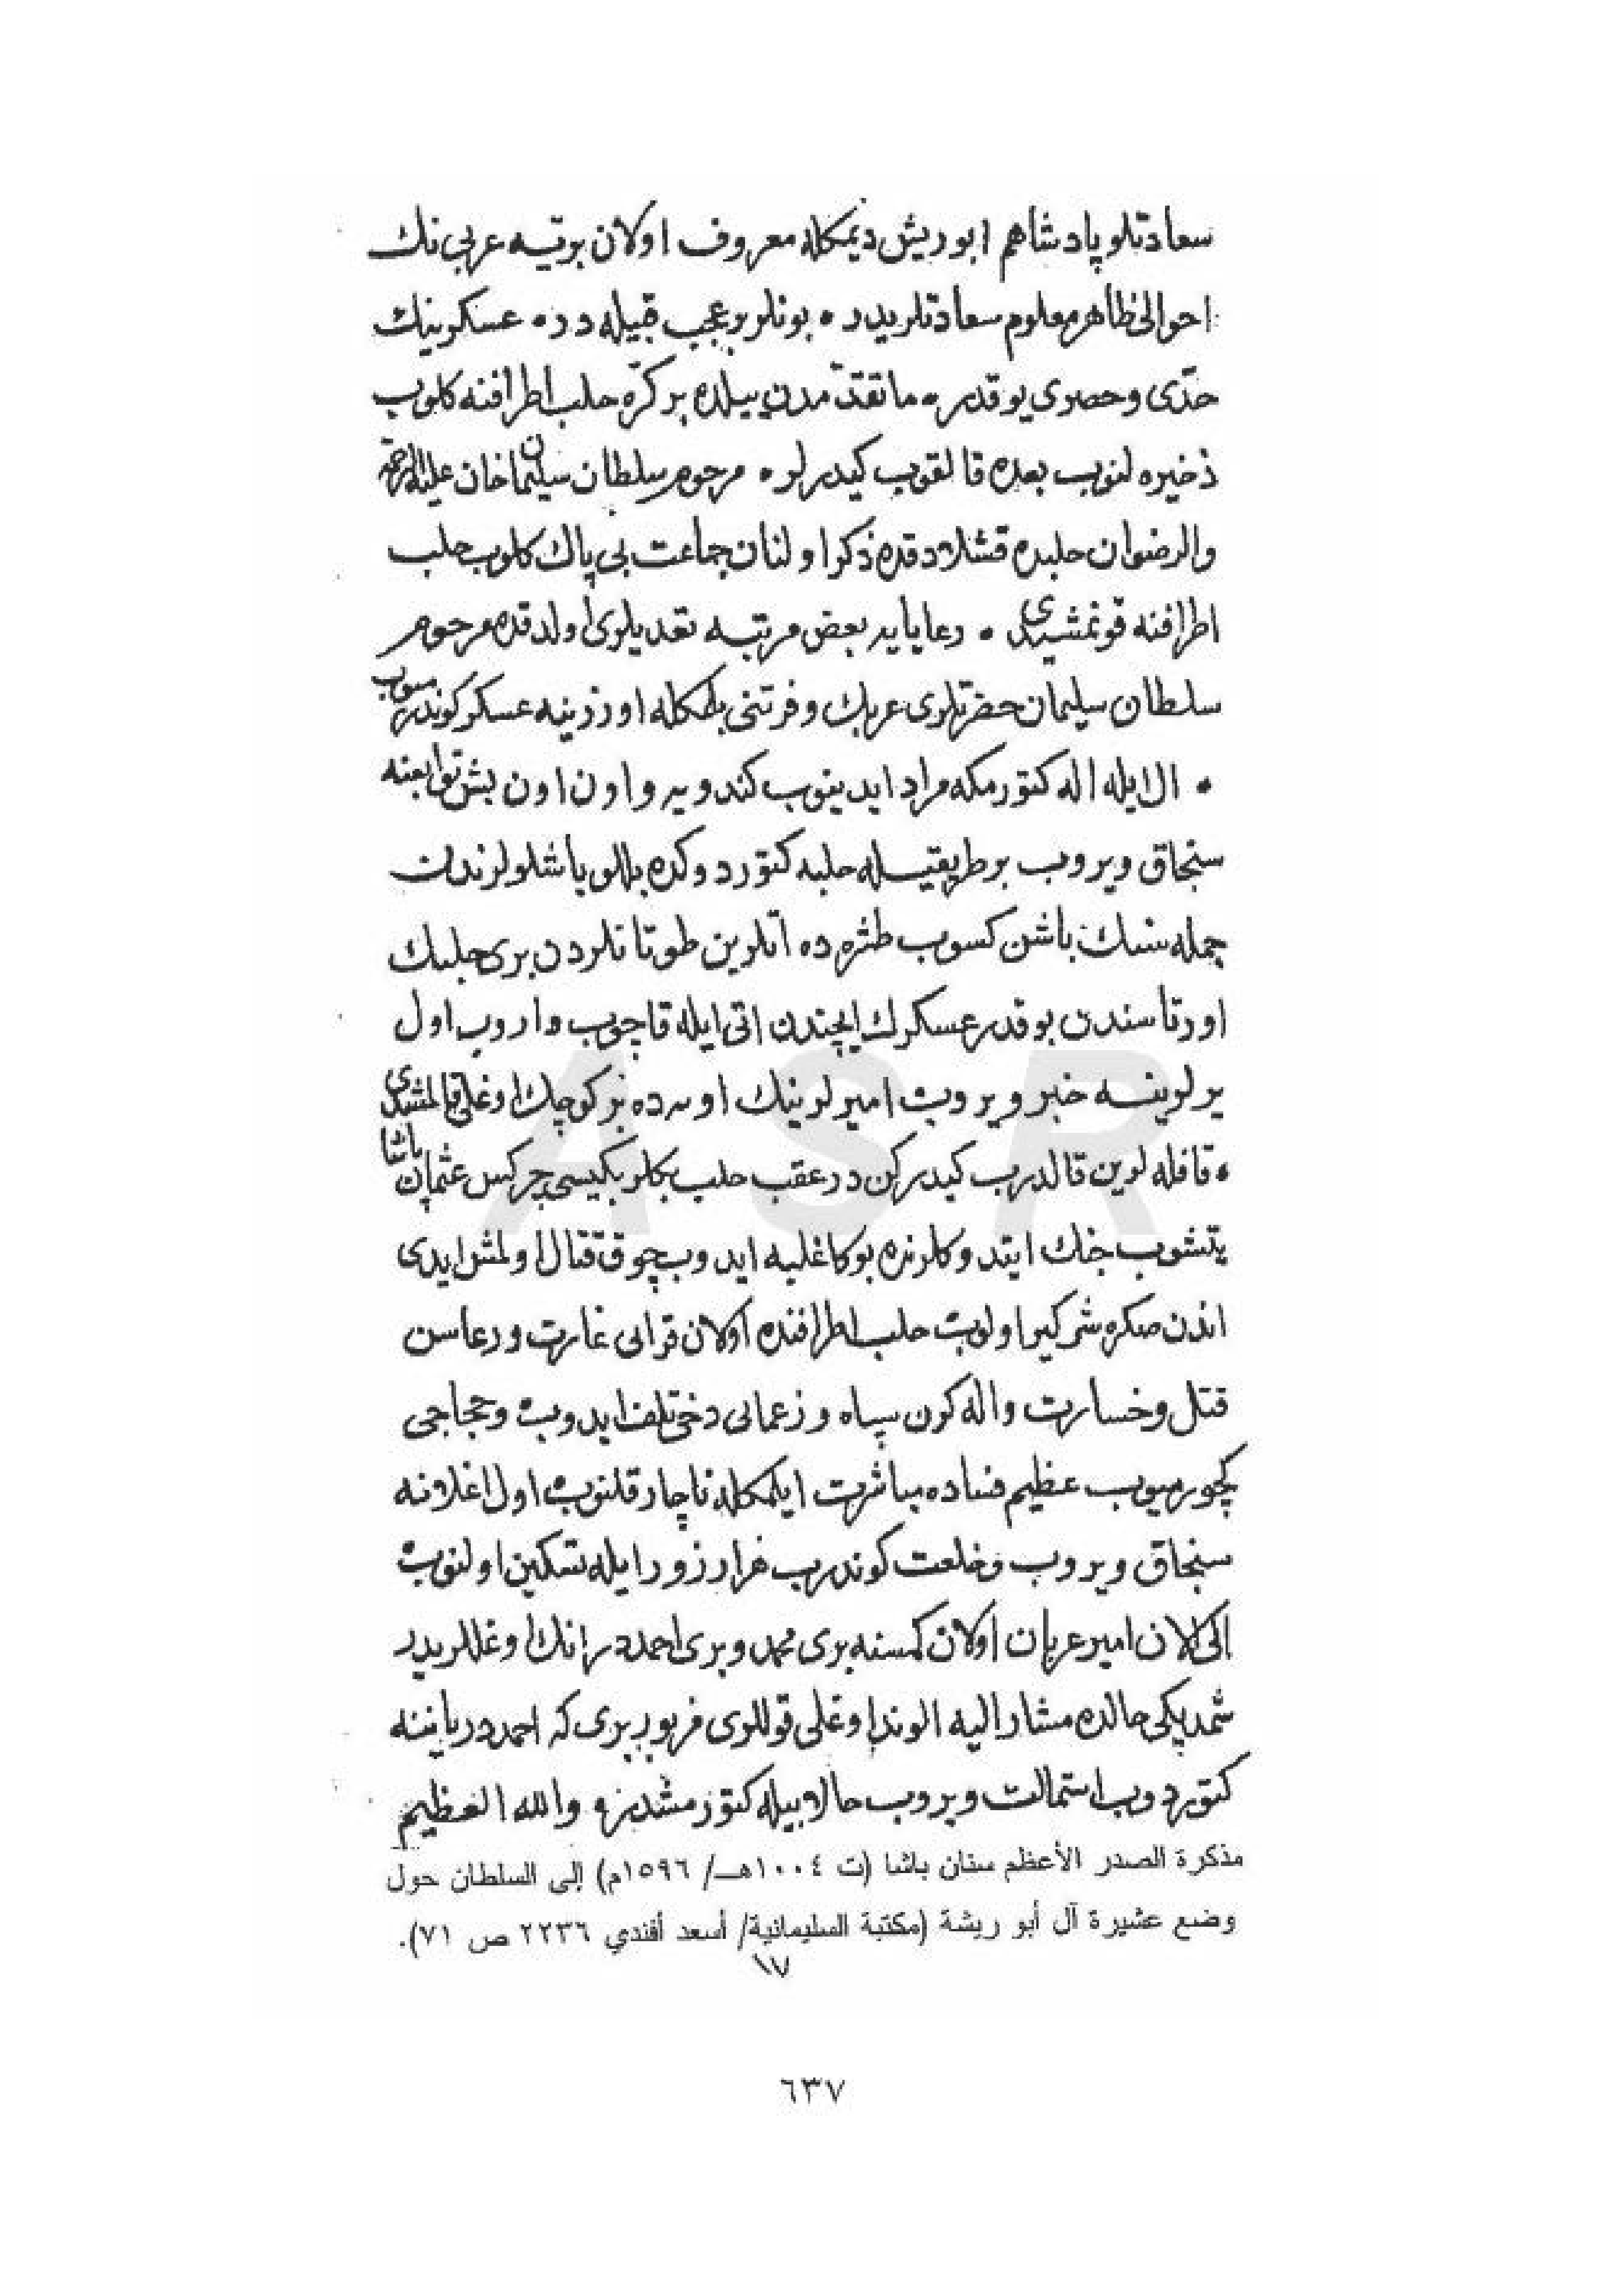 سعادتلو پادشاهم ابو ریش دیمکله معروف اولان بو قبیله عربی نك
احوالی ظاهر معلوم سعادتلریدر • بونلر بر عجب قبیله در • عسکرینك
حدّی و حصری یوقدر • ماتقدّمدن ییلده بر کرّه حلب اطرافنه کلوب
ذخیره لنوب بعده قالقوب کیدرلر • مرحوم سلطان سلیمان خان علیه الرحمة
والرضوان حلبده قشلادقده ذکر اولنان جماعت بی پاك کلوب حلب
اطرافنه قونمشیدی • رعایایه بعض مرتبه تعدیلری اولدقده مرحوم
سلطان سلیمان حضرتلری عربك وفرتنی بلمکله اوزرینه عسکر کوندرمیوب
• ال ایله اله کتورمکه مراد ایدینوب کندویه و اون اون بش توابعنه
سنجاق ویروب بر طریقیله حلبه کتوردوکده بللو باشلولرندن
جمله سنك باشن کسوب طشره ده اتلرین طوتانلردن بری حلبك
اورتاسندن بو قدر عسکرك ایچندن اتی ایله قاچوب واروب اول
یرلرینه خبر ویروب امیرلرینك اوده بر کوچك اوغلی قالمشیدی
• قافله لرین قالدرب کیدرکن درعقب حلب بکلربکیسی چرکس عثمان پاشا
یتشوب جنك ایتدوکلرنده بوکا غلبه ایدوب چوق قتال اولمش ایدی
اندن صکره شرکیر اولوب حلب اطرافنده اولان قرایی غارت و رعاسن
قتل وخسارت واله کرن سپاه و زعمایی دخی تلف ایدوب وحجاجی
کچورمیوب عظیم فساده مباشرت ایلمکله ناچار قلنوب اول اغلانه
سنجاق ویروب وخلعت کوندرب هزار زور ایله تسکین اولنوب
الی الان امیر عربان اولان کمسنه بری محمد و بری احمددر انك اوغللریدر
شمدیکی حالده مشار الیه الوند اوغلی قوللری فربور بری که احمددر یاننه
کتوردوب استمالت ویروب حالا بیله کتورمشدر • والله العظیم
مذكرة الصدر الأعظم سنان باشا (ت ١٠٠٤هـ/ ١٥٩٦م) إلى السلطان حول
وضع عشيرة آل أبو ريشة (مكتبة السليمانية/ أسعد أفندي ٢٢٣٦ ص ٧١).
١٧
ASR
٦٣٧